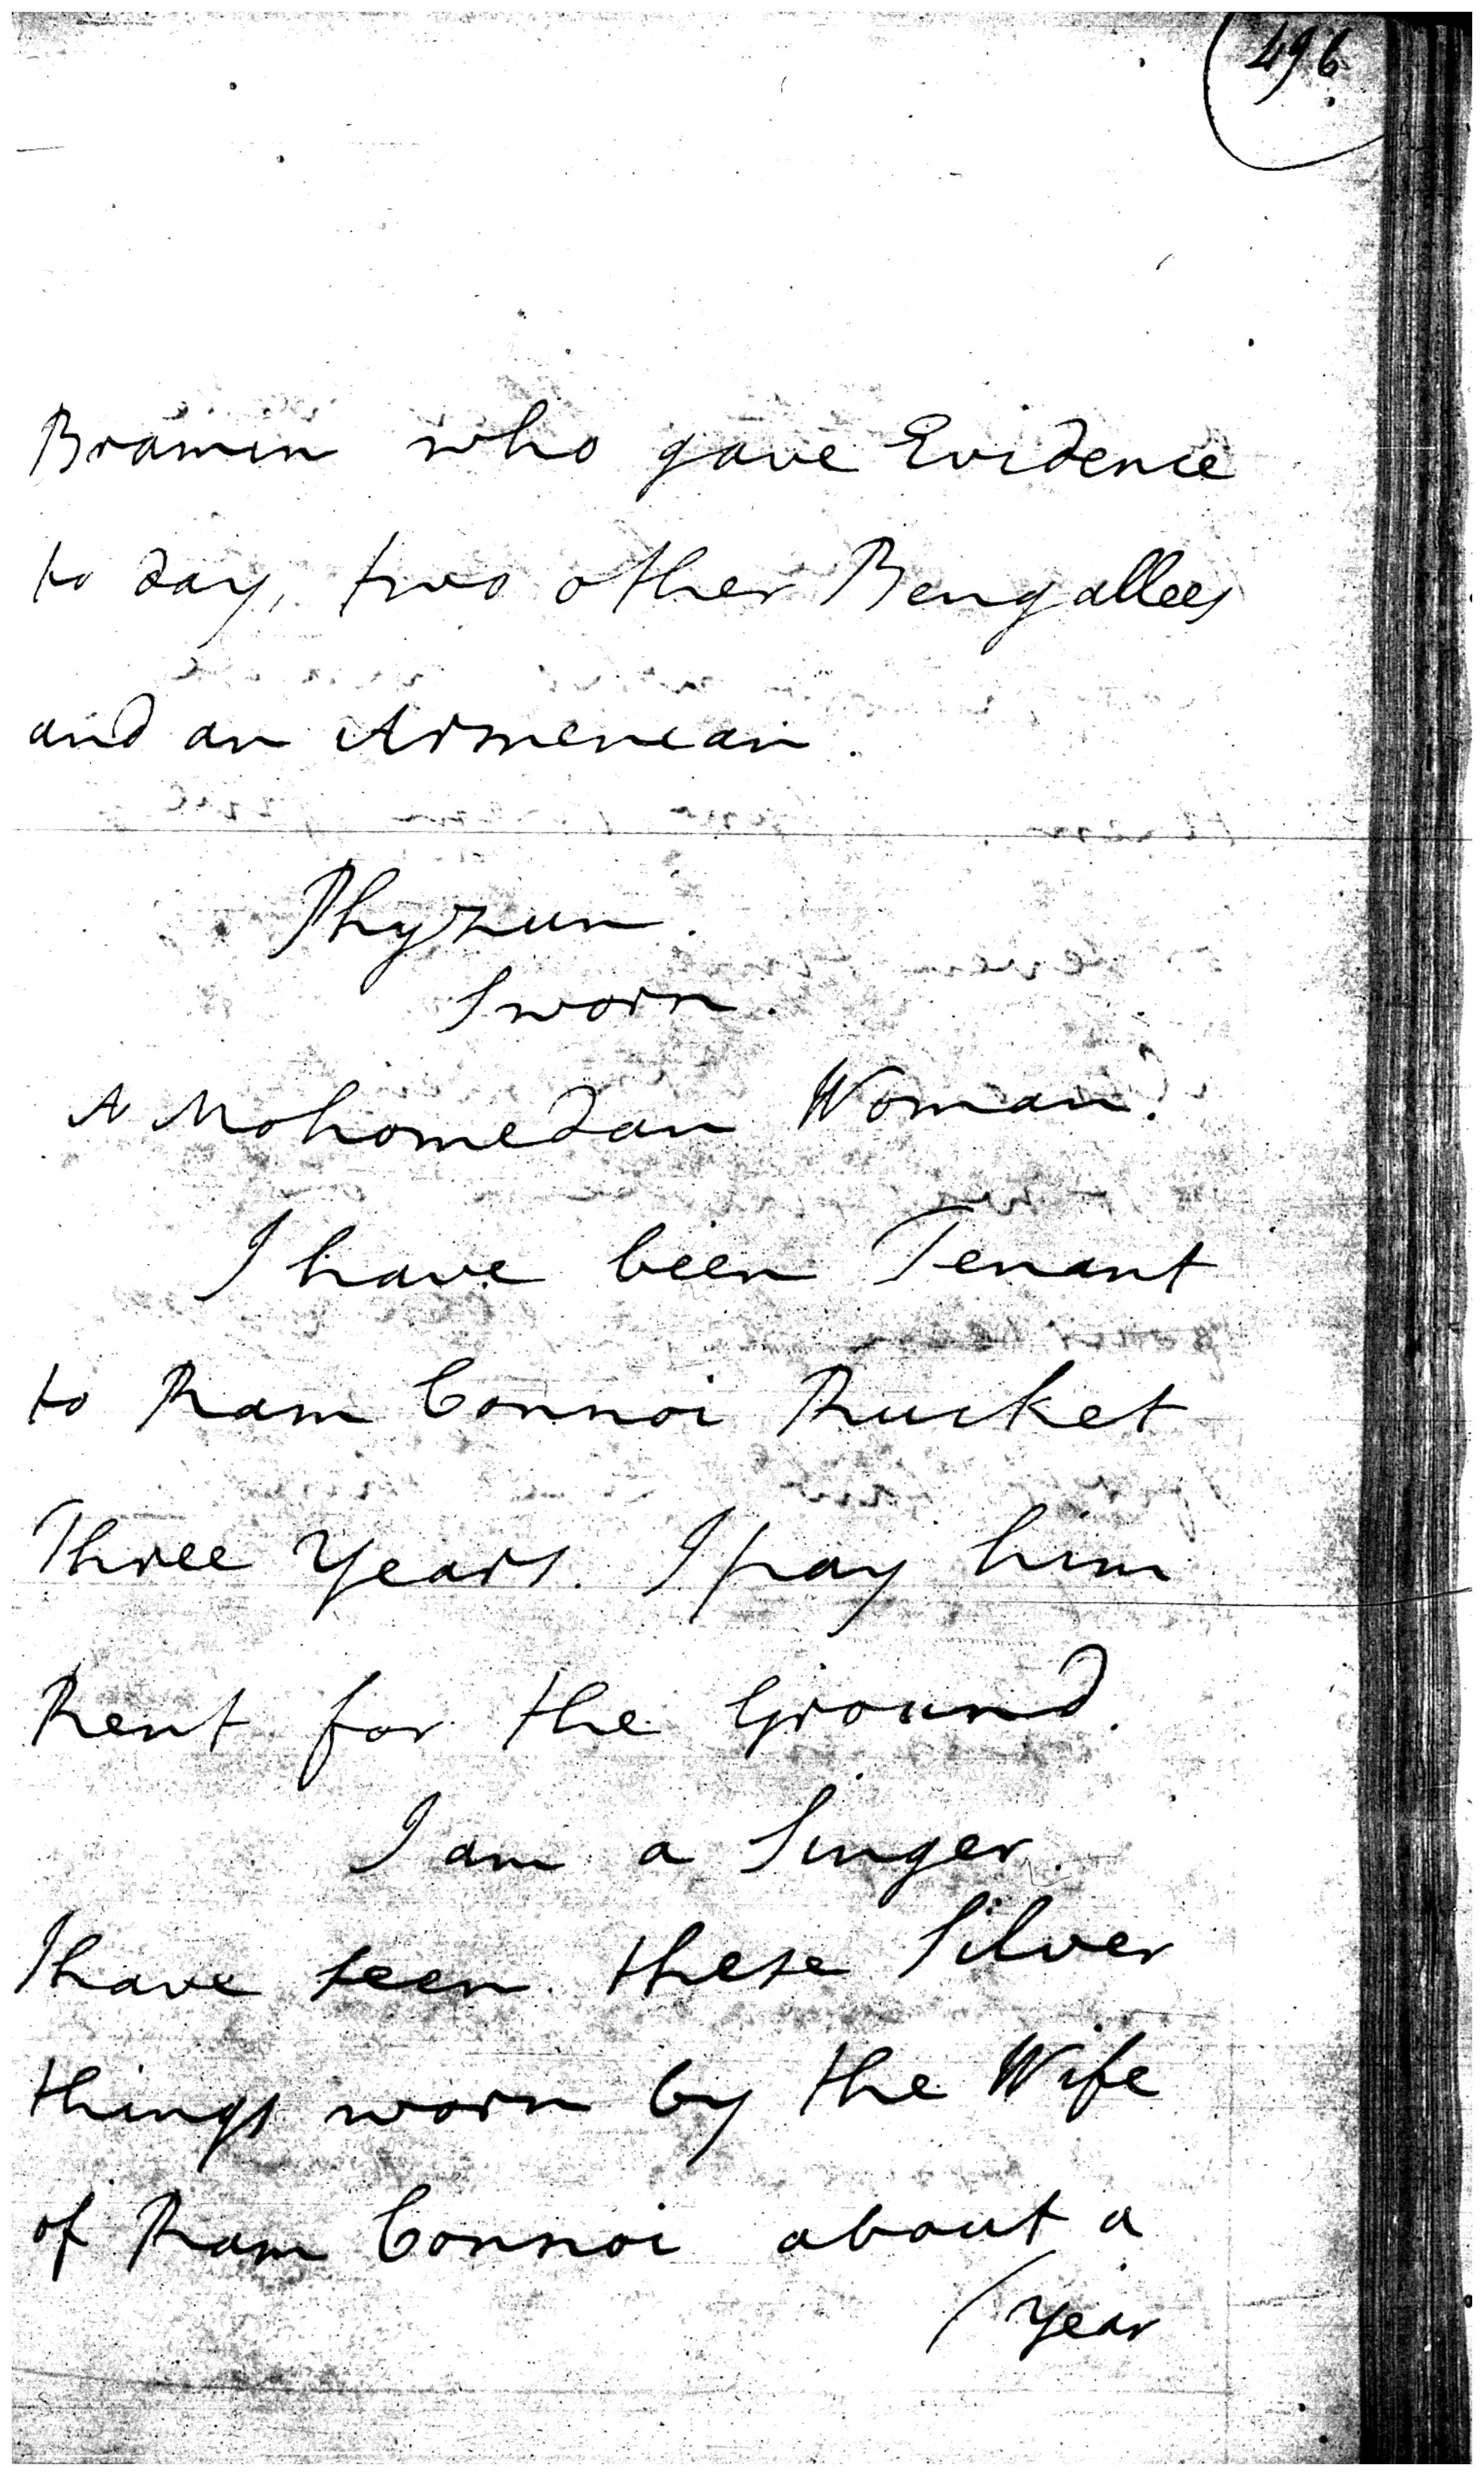 496
Bramin who gave Evidence
to day, two other Bengallees
and an Armenian.
Phyzun.
Sworn.
A Mohomedan Woman.
I have been Tenant
to Ram Connoi Rucket
Three Years. I pay him
Rent for the Ground.
I am a Singer.
I have seen these Silver
things worn by the Wife
of Ram Connoi about a
/ Year